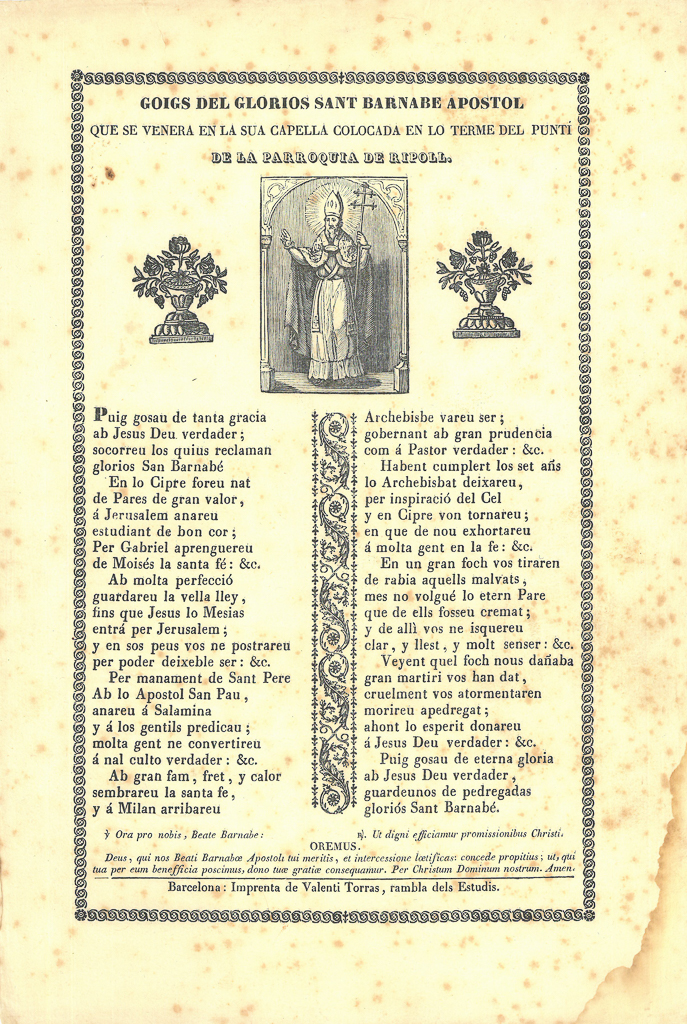 GOIGS DEL GLORIOS SANT BARNABE APOSTOL
QUE SE VENERA EN LA SUA CAPELLA COLOCADA EN LO TERME DEL PUNTÍ
DE LA PARROQUIA DE RIPOLL.
Puig gosau de tanta gracia
ab Jesus Deu verdader;
socorreu los quius reclaman
glorios San Barnabé
En lo Cipre foreu nat
de Pares de gran valor,
á Jerusalem anareu
estudiant de bon cor;
Per Gabriel aprenguereu
de Moisés la santa fé: &c.
Ab molta perfecció
guardareu la vella lley,
fins que Jesus lo Mesias
entrá per Jerusalem;
y en sos peus vos ne postrareu
per poder deixeble ser: &c.
Per manament de Sant Pere
Ab lo Apostol San Pau,
anareu á Salamina
y á los gentils predicau;
molta gent ne convertireu
á nal culto verdader: &c.
Ab gran fam, fret, y calor
sembrareu la santa fe,
y á Milan arribareu
Archebisbe vareu ser;
gobernant ab gran prudencia
com á Pastor verdader: &c.
Habent cumplert los set añs
lo Archebisbat deixareu,
per inspiració del Cel
y en Cipre von tornareu;
en que de nou exhortareu
á molta gent en la fe: &c.
En un gran foch vos tiraren
de rabia aquells malvats,
mes no volgué lo etern Pare
que de ells fosseu cremat;
y de allì vos ne isquereu
clar, y llest, y molt senser: &c.
Veyent quel foch nous dañaba
gran martiri vos han dat,
cruelment vos atormentaren
morireu apedregat;
ahont lo esperit donareu
á Jesus Deu verdader: &c.
Puig gosau de eterna gloria
ab Jesus Deu verdader,
guardeunos de pedregadas
gloriós Sant Barnabé.
℣ Ora pro nobis, Beate Barnabe:
℟. Ut digni efficiamur promissionibus Christi.
OREMUS.
Deus, qui nos Beati Barnabæ Apostoli tui meritis, et intercessione lœtificas: concede propitius; ut, qui
tua per eum benefficia poscimus, dono tuæ gratiæ consequamur. Per Christum Dominum nostrum. Amen.
Barcelona: Imprenta de Valenti Torras, rambla dels Estudis.